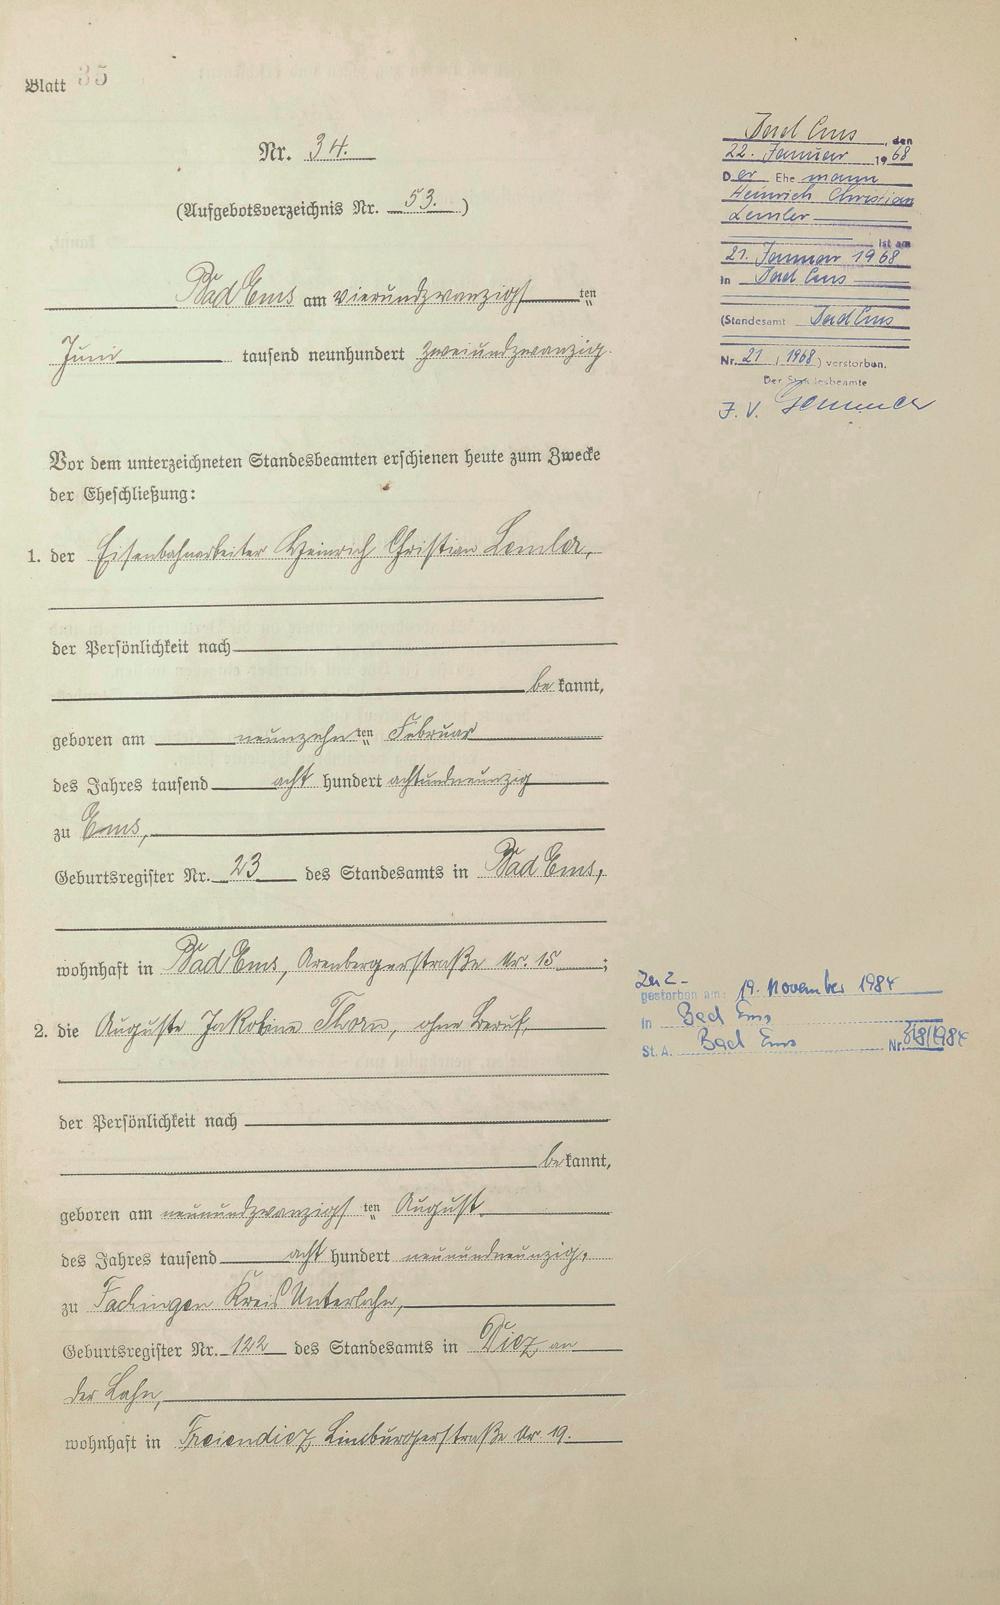 Blatt 35
Nr. 34.
(Aufgebotsverzeichnis Nr. 53.)
Bad Ems am vierundzwanzigsten
Juni tausend neunhundert zweiundzwanzig.
Vor dem unterzeichneten Standesbeamten erschienen heute zum Zwecke
der Eheschließung:
1. der Eisenbahnarbeiter Heinrich Christian Lemler,
der Persönlichkeit nach
bekannt,
geboren am neunzehnten Februar
des Jahres tausend acht hundert achtundneunzig
zu Ems,
Geburtsregister Nr. 23 des Standesamts in Bad Ems,
wohnhaft in Bad Ems, Arenbergerstraße Nr. 15;
2. die Auguste Jakobine Thorn, ohne Beruf,
der Persönlichkeit nach
bekannt,
geboren am neunundzwanzigsten August
des Jahres tausend acht hundert neunundneunzig,
zu Fachingen Kreis Unterlahn,
Geburtsregister Nr. 122 des Standesamts in Diez an
der Lahn,
wohnhaft in Freiendiez Limburgerstraße Nr. 19.
Bad Ems, den
22. Januar 1968
Der Ehemann
Heinrich Christian
Lemler
ist am
21. Januar 1968
in Bad Ems
(Standesamt Bad Ems
Nr. 21 / 1968) verstorben.
Der Standesbeamte
J. V.
Zu 2 -
gestorben am: 19. November 1984
in Bad Ems
St. A. Bad Ems Nr. 318/1984